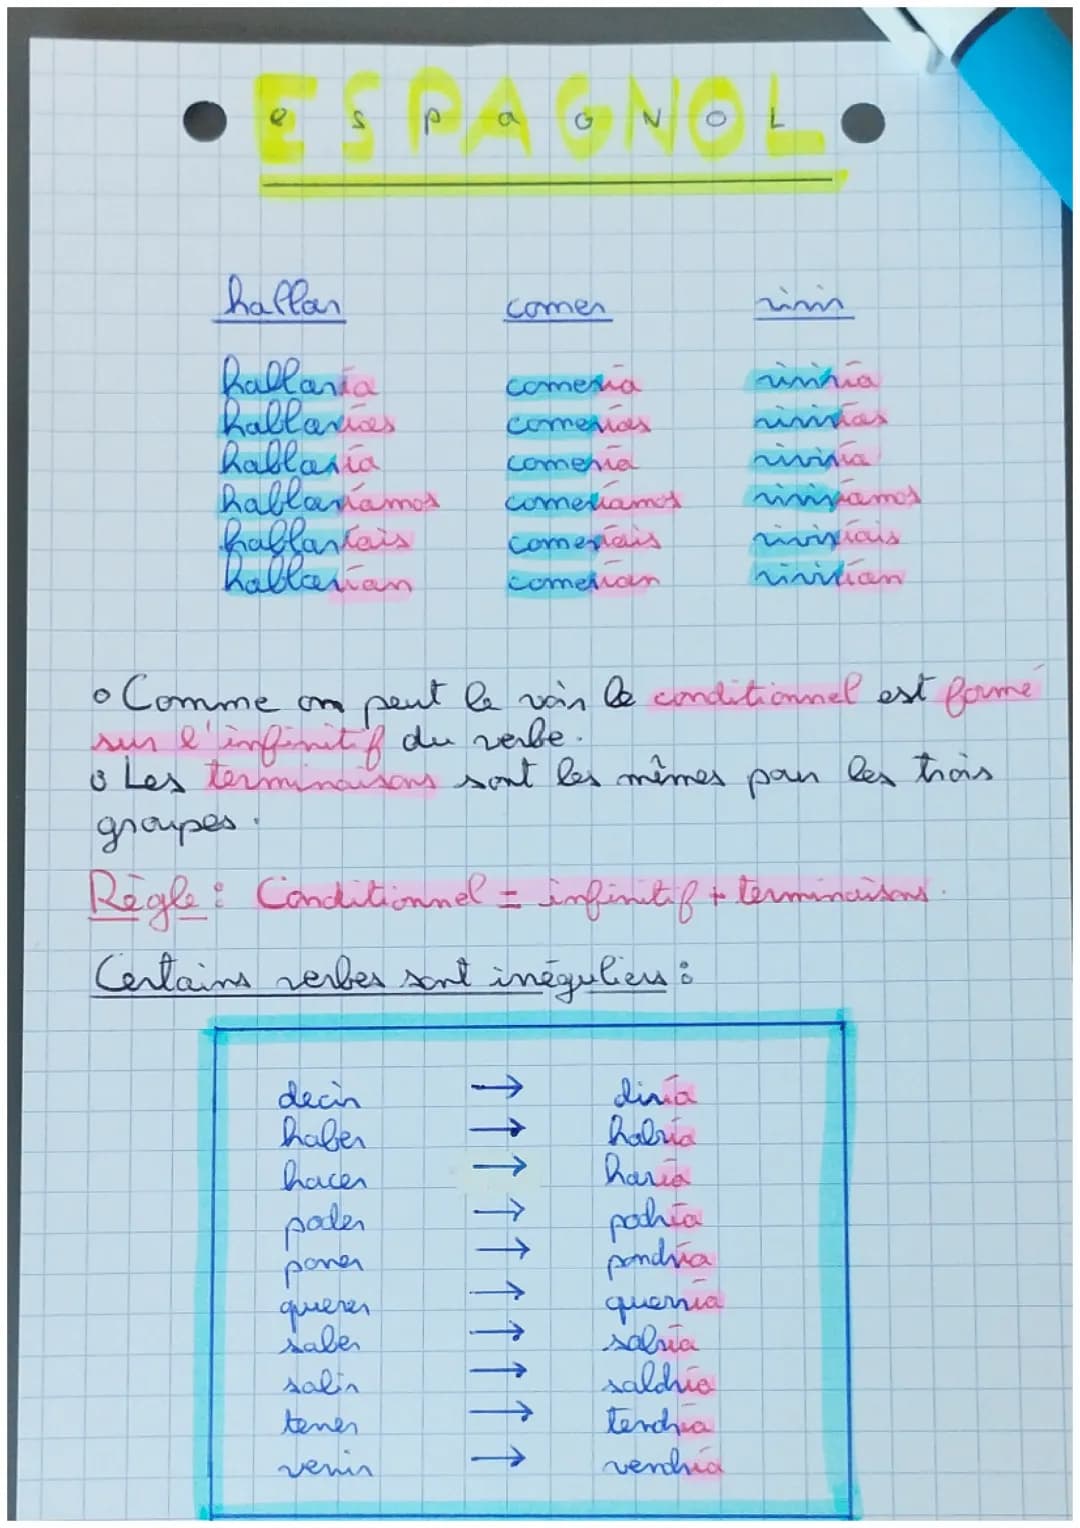 ESPAGNOL
hablar comer vivir
hablaría comería viviría
hablarías comerías vivirías
hablaría comería viviría
hablaríamos comeríamos viviríamos
hablaríais comeríais viviríais
hablarían comerían vivirían
○ Comme on peut le voir le conditionnel est formé
sur l'infinitif du verbe.
○ Les terminaisons sont les mêmes pour les trois
groupes.
Règle : Conditionnel = infinitif + terminaisons.
Certains verbes sont irréguliers :
decir → diría
haber → habría
hacer → haría
poder → podría
poner → pondría
querer → querría
saber → sabría
salir → saldría
tener → tendría
venir → vendría